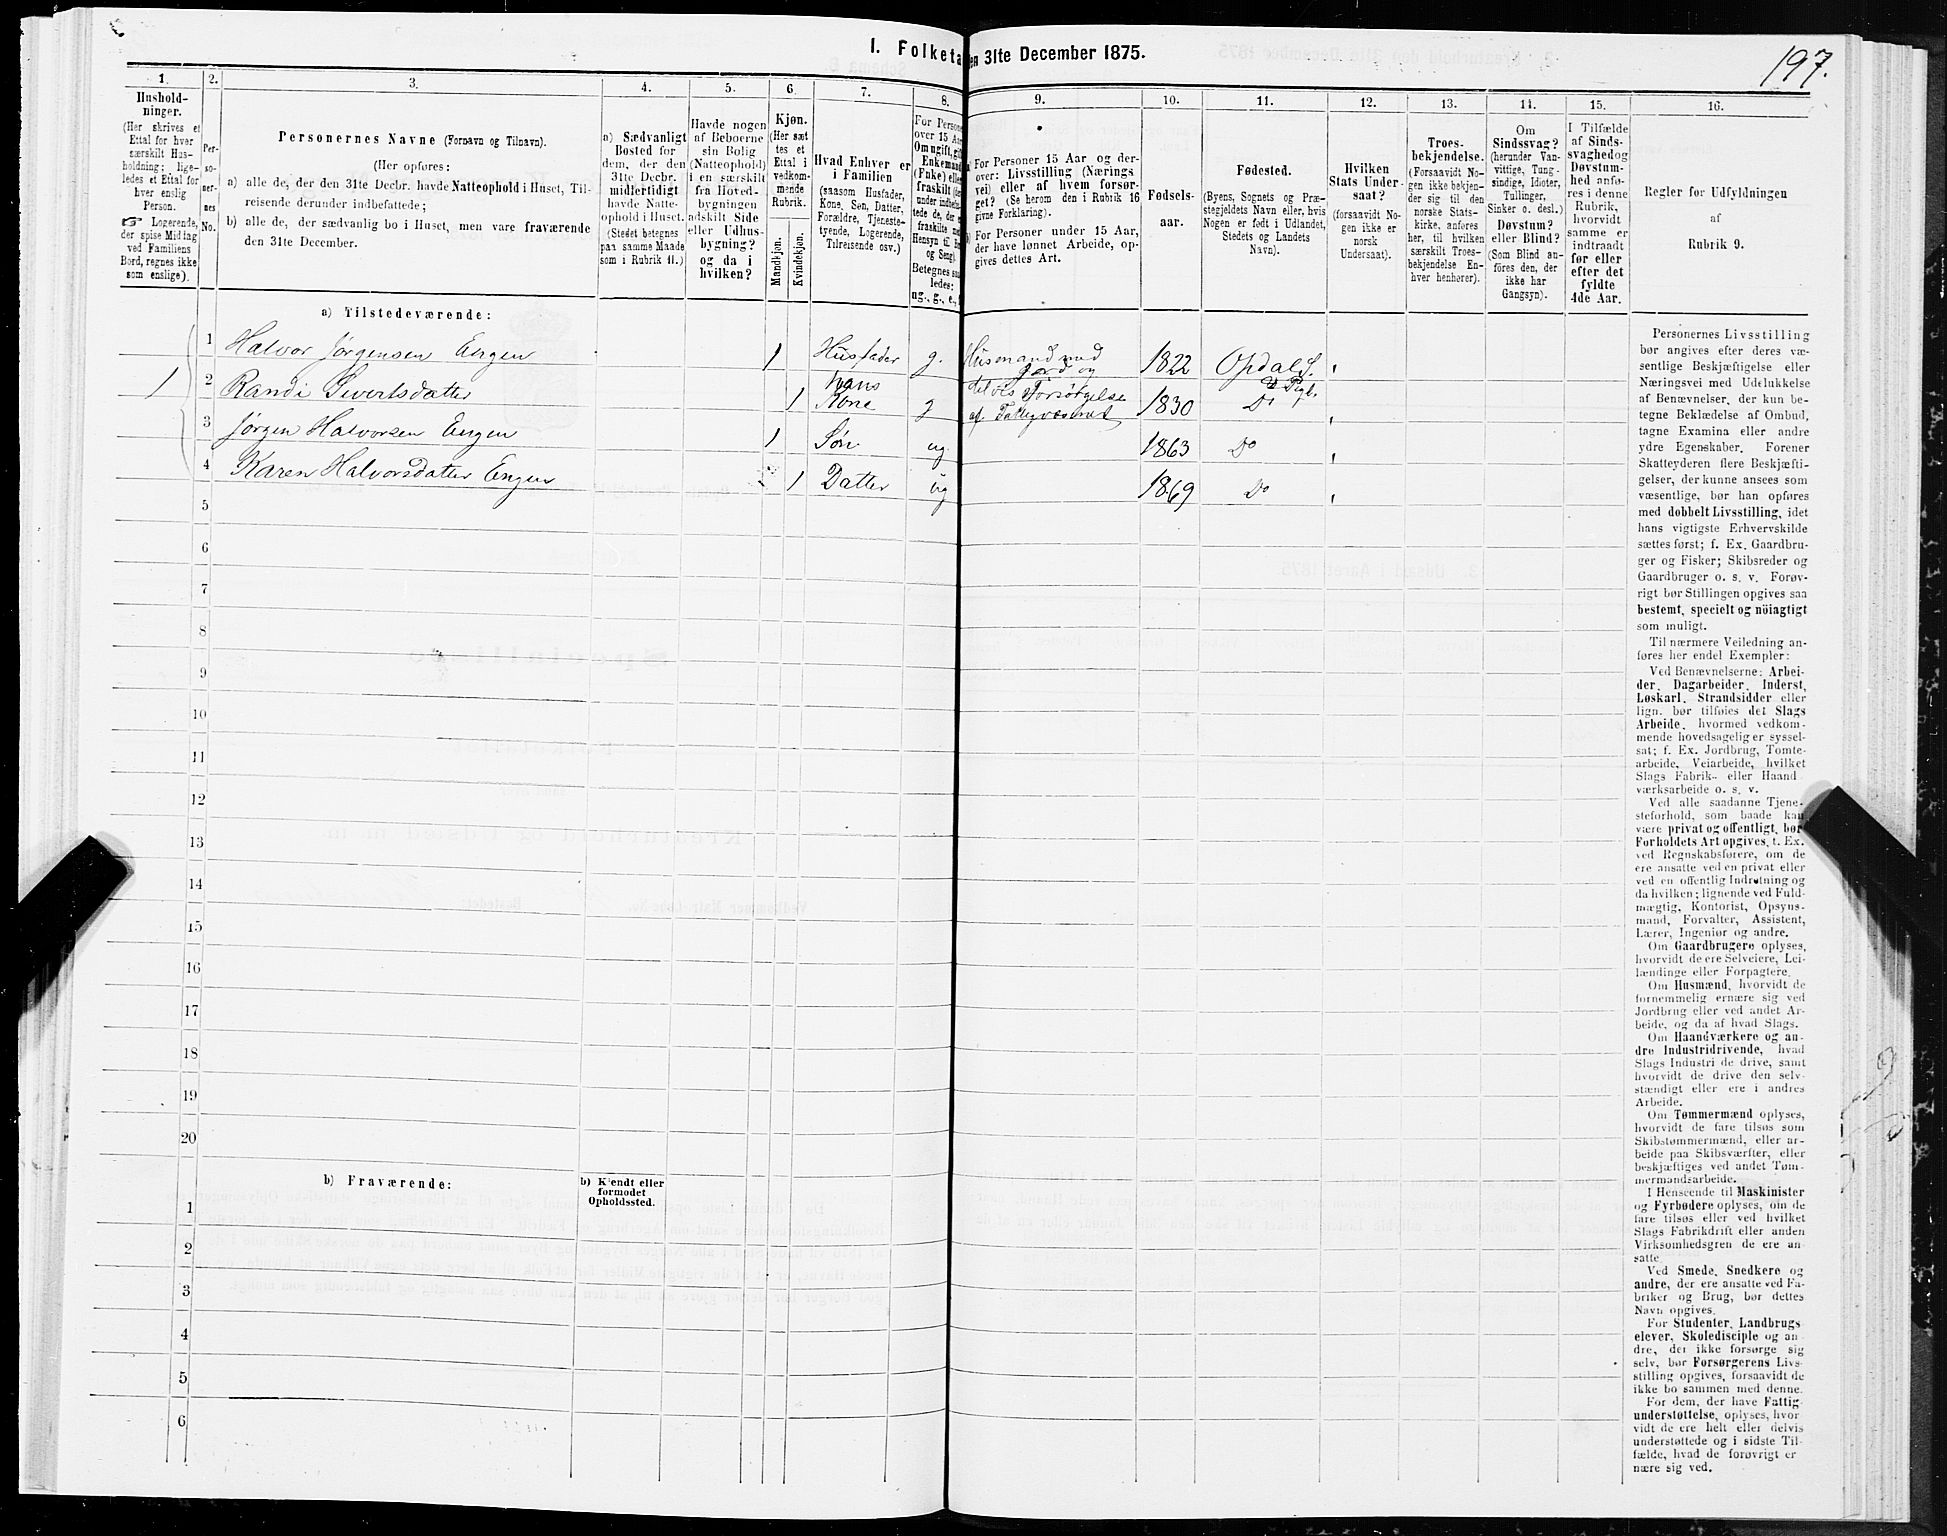 I. Folketa
en 31te December 1875.
197.
1.
Hushold-
ninger.
(Her skrives et
Ettal for hver
særskilt Hus-
holdning; lige-
ledes et Ettal for
hver enslig
Person.
☞ Logerende,
der spise Midtag
ved Familiens
Bord, regnes ikke
som enslige).
2.
Per-
so-
ner-
nes
No.
3.
Personernes Navne (Fornavn og Tilnavn).
(Her opføres:
a) alle de, der den 31te Decbr. havde Natteophold i Huset, Til-
reisende derunder indbefattede;
b) alle de, der sædvanlig bo i Huset, men vare fraværende
den 31te December.
4.
a) Sædvanligt
Bosted for
dem, der den
31te Decbr.
midlertidigt
havde Natte-
ophold i Huset.
(Stedet betegnes
paa samme Maade
som i Rubrik 11.)
5.
Havde nogen
af Beboerne
sin Bolig
(Natteophold)
i en særskilt
fra Hoved-
bygningen
adskilt Side
eller Udhus-
bygning?
og da i
hvilken?
6.
Kjøn.
(Her sæt
tes et
Ettal i
vedkom-
mende
Rubrik.
Mandkjøn.
Kvindekjøn.
7.
Hvad Enhver er
i Familien
(saasom Husfader,
Kone, Søn, Datter,
Forældre, Tjeneste-
tyende, Logerende,
Tilreisende osv.)
8.
For Persone
over 15 Aar
Om ugift, gift
Enkemand
(Enke) elle
fraskilt (der
under indbefat-
tede de, der e
fraskilte med
Hensyn til B
og Seng).
Betegnes saa
ledes:
ug., g., e.,
9.
For Personer 15 Aar og der-
over: Livsstilling (Nærings
vei) eller af hvem forsør-
get? (Se herom den i Rubrik 16
givne Forklaring).
For Personer under 15 Aar,
der have lønnet Arbeide, op-
gives dettes Art.
10.
Fødsels-
aar.
11.
Fødested.
(Byens, Sognets og Præ-
stegjeldets Navn eller, hvis
Nogen er født i Udlandet,
Stedets og Landets
Navn).
12.
Hvilken
Stats Under-
saat?
(forsaavidt No-
gen ikke er
norsk
Undersaat).
13.
Troes-
bekjendelse.
(Forsaavidt No-
gen ikke bekjen-
der sig til den
norske Stats-
kirke, anføres
her, til hvilken
særskilt Troes-
bekjendelse En-
hver henhører).
14.
Om
Sindssvag?
(herunder Van-
vittige, Tung-
sindige, Idioter,
Tullinger,
Sinker o. desl.)
Døvstum?
eller Blind?
(Som Blind an-
føres den, der
ikke har
Gangsyn).
15.
I Tilfælde
af Sinds-
svaghed og
Døvstum-
hed anfø-
res i denne
Rubrik,
hvorvidt
samme er
indtraadt
før eller
efter det
fyldte
4de Aar.
16.
Regler for Udfyldningen
af
Rubrik 9.
a) Tilstedeværende:
1
1 Halvor Jørgensen Engen 1 Husfader g. Husmand med Jord og 1822 Opdal S.
2 Randi Sivertsdatter 1 hans Kone g delvis Forsørgelse af Fattigvæsenet 1830 Do
3 Jørgen Halvorsen Engen 1 Søn ug 1863 Do
4 Karen Halvorsdatter Engen 1 Datter ug 1869 Do
5
6
7
8
9
10
11
12
13
14
15
16
17
18
19
20
b) Fraværende:
b) Kjendt eller
formodet
Opholdssted.
1
2
3
4
5
6
Personernes Livsstilling
bør angives efter deres væ-
sentlige Beskjæftigelse eller
Næringsvei med Udelukkelse
af Benævnelser, der kun be-
tegne Beklædelse af Ombud,
tagne Examina eller andre
ydre Egenskaber. Forener
Skatteyderen flere Beskjæfti-
gelser, der kunne ansees som
væsentlige, bør han opføres
med dobbelt Livsstilling, idet
hans vigtigste Erhvervskilde
sættes først; f. Ex. Gaardbru-
ger og Fisker; Skibsreder og
Gaardbruger o. s. v. Forøv-
rigt bør Stillingen opgives saa
bestemt, specielt og nöiagtigt
som muligt.
Til nærmere Veiledning an-
føres her endel Exempler:
Ved Benævnelserne: Arbei-
der, Dagarbeider, Inderst,
Løskarl, Strandsidder eller
lign. bør tilføies det Slags
Arbeide, hvormed vedkom-
mende hovedsagelig er syssel-
sat; f. Ex. Jordbrug, Tomte-
arbeide, Veiarbeide, hvilket
Slags Fabrik- eller Haand
værksarbeide o. s. v.
Ved alle saadanne Tjene-
steforhold, som baade kan
være privat og offentligt, bør
Forholdets Art opgives, t. Ex.
ved Regnskabsførere, om de
ere ansatte ved en privat eller
ved en offentlig Indretning og
da hvilken; lignende ved Fuld-
mægtig, Kontorist, Opsyns-
mand, Forvalter, Assistent,
Lærer, Ingeniør og andre.
Om Gaardbrugere oplyses,
hvorvidt de ere Selveiere, Lei-
lændinge eller Forpagtere.
Om Husmænd, hvorvidt de
fornemmelig ernære sig ved
Jordbrug eller ved andet Ar-
beide, og da af hvad Slags.
Om Haandværkere og an-
dre Industridrivende, hvad
Slags Industri de drive, samt
hvorvidt de drive den selv-
stændigt eller ere i andres
Arbeide.
Om Tømmermænd oplyses,
hvorvidt de fare tilsøs som
Skibstømmermænd, eller ar-
beide paa Skibsværfter, eller
beskjæftiges ved andet Tøm-
mermandsarbeide.
I Henseende til Maskinister
og Fyrbødere oplyses, om de
fare tilsøs eller ved hvilket
Slags Fabrikdrift eller anden
Virksomhedsgren de ere an-
satte.
Ved Smede, Snedkere og
andre, der ere ansatte ved Fa-
briker og Brug, bør dettes
Navn opgives.
For Studenter, Landbrugs-
elever, Skoledisciple og an-
dre, der ikke forsørge sig
selv, bør Forsørgerens Livs-
stilling opgives, forsaavidt de
ikke bo sammen med denne.
For dem, der have Fattig-
understøttelse, oplyses, hvor-
vidt de ere helt eller delvis
understøttede og i sidste Til-
fælde, hvad de forøvrigt er
nære sig ved.